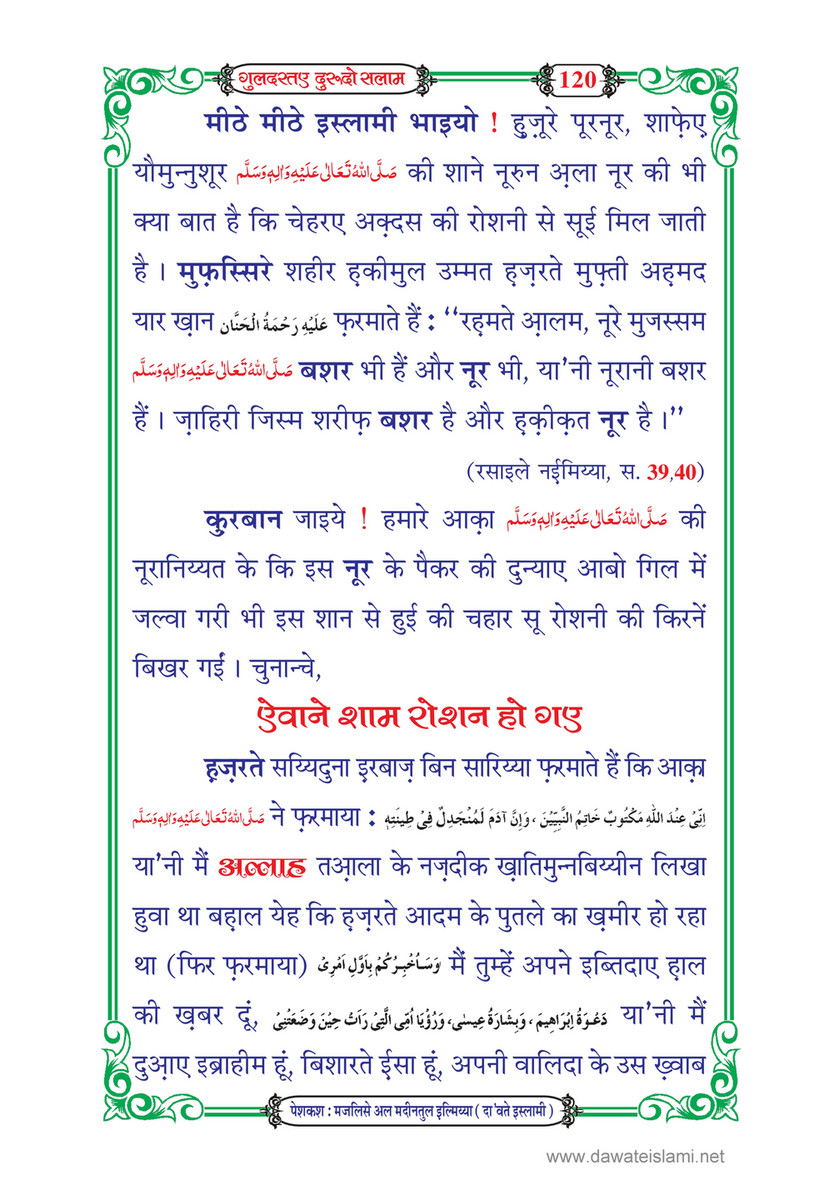 गुलदस्तए दुरूदो सलाम
120
मीठे मीठे इस्लामी भाइयो ! हुज़ूरे पूरनूर, शाफ़ेए
यौमुन्नुशूर صَلَّى اللهُ تَعَالٰى عَلَيْهِ وَاٰلِهٖ وَسَلَّم की शाने नूरुन अ़ला नूर की भी
क्या बात है कि चेहरए अक़्दस की रोशनी से सूई मिल जाती
है । मुफ़स्सिरे शहीर ह़कीमुल उम्मत ह़ज़रते मुफ़्ती अह़मद
यार ख़ान عَلَيْهِ رَحْمَةُ الْحَنَّان फ़रमाते हैं : ‘‘रह़मते आ़लम, नूरे मुजस्सम
صَلَّى اللهُ تَعَالٰى عَلَيْهِ وَاٰلِهٖ وَسَلَّم बशर भी हैं और नूर भी, या’नी नूरानी बशर
हैं । ज़ाहिरी जिस्म शरीफ़ बशर है और ह़क़ीक़त नूर है ।’’
(रसाइले नईमिय्या, स. 39,40)
कुरबान जाइये ! हमारे आक़ा صَلَّى اللهُ تَعَالٰى عَلَيْهِ وَاٰلِهٖ وَسَلَّم की
नूरानिय्यत के कि इस नूर के पैकर की दुन्याए आबो गिल में
जल्वा गरी भी इस शान से हुई की चहार सू रोशनी की किरनें
बिखर गईं । चुनान्चे,
ऐवाने शाम रोशन हो गए
ह़ज़रते सय्यिदुना इ़रबाज़ बिन सारिय्या फ़रमाते हैं कि आक़ा
صَلَّى اللهُ تَعَالٰى عَلَيْهِ وَاٰلِهٖ وَسَلَّم ने फ़रमाया : اِنِّىْ عِنْدَ اللهِ مَكْتُوبٌ خَاتِمُ النَّبِيِّيْنَ ، وَاِنَّ آدَمَ لَمُنْجَدِلٌ فِىْ طِينَتِهٖ
या’नी मैं अल्लाह तआ़ला के नज़दीक ख़ातिमुन्नबिय्यीन लिखा
हुवा था बह़ाल येह कि ह़ज़रते आदम के पुतले का ख़मीर हो रहा
था (फिर फ़रमाया) وَسَأُخْبِرُكُمْ بِاَوَّلِ اَمْرِىْ मैं तुम्हें अपने इब्तिदाए ह़ाल
की ख़बर दूं, دَعْوَةُ اِبْرَاهِيمَ ، وَبِشَارَةُ عِيسٰى، وَرُؤْيَا اُمِّى الَّتِىْ رَاَتْ حِيْنَ وَضَعَتْنِىْ या’नी मैं
दुआ़ए इब्राहीम हूं, बिशारते ई़सा हूं, अपनी वालिदा के उस ख़्वाब
पेशकश : मजलिसे अल मदीनतुल इ़ल्मिय्या ( दा 'वते इस्लामी )
www.dawateislami.net